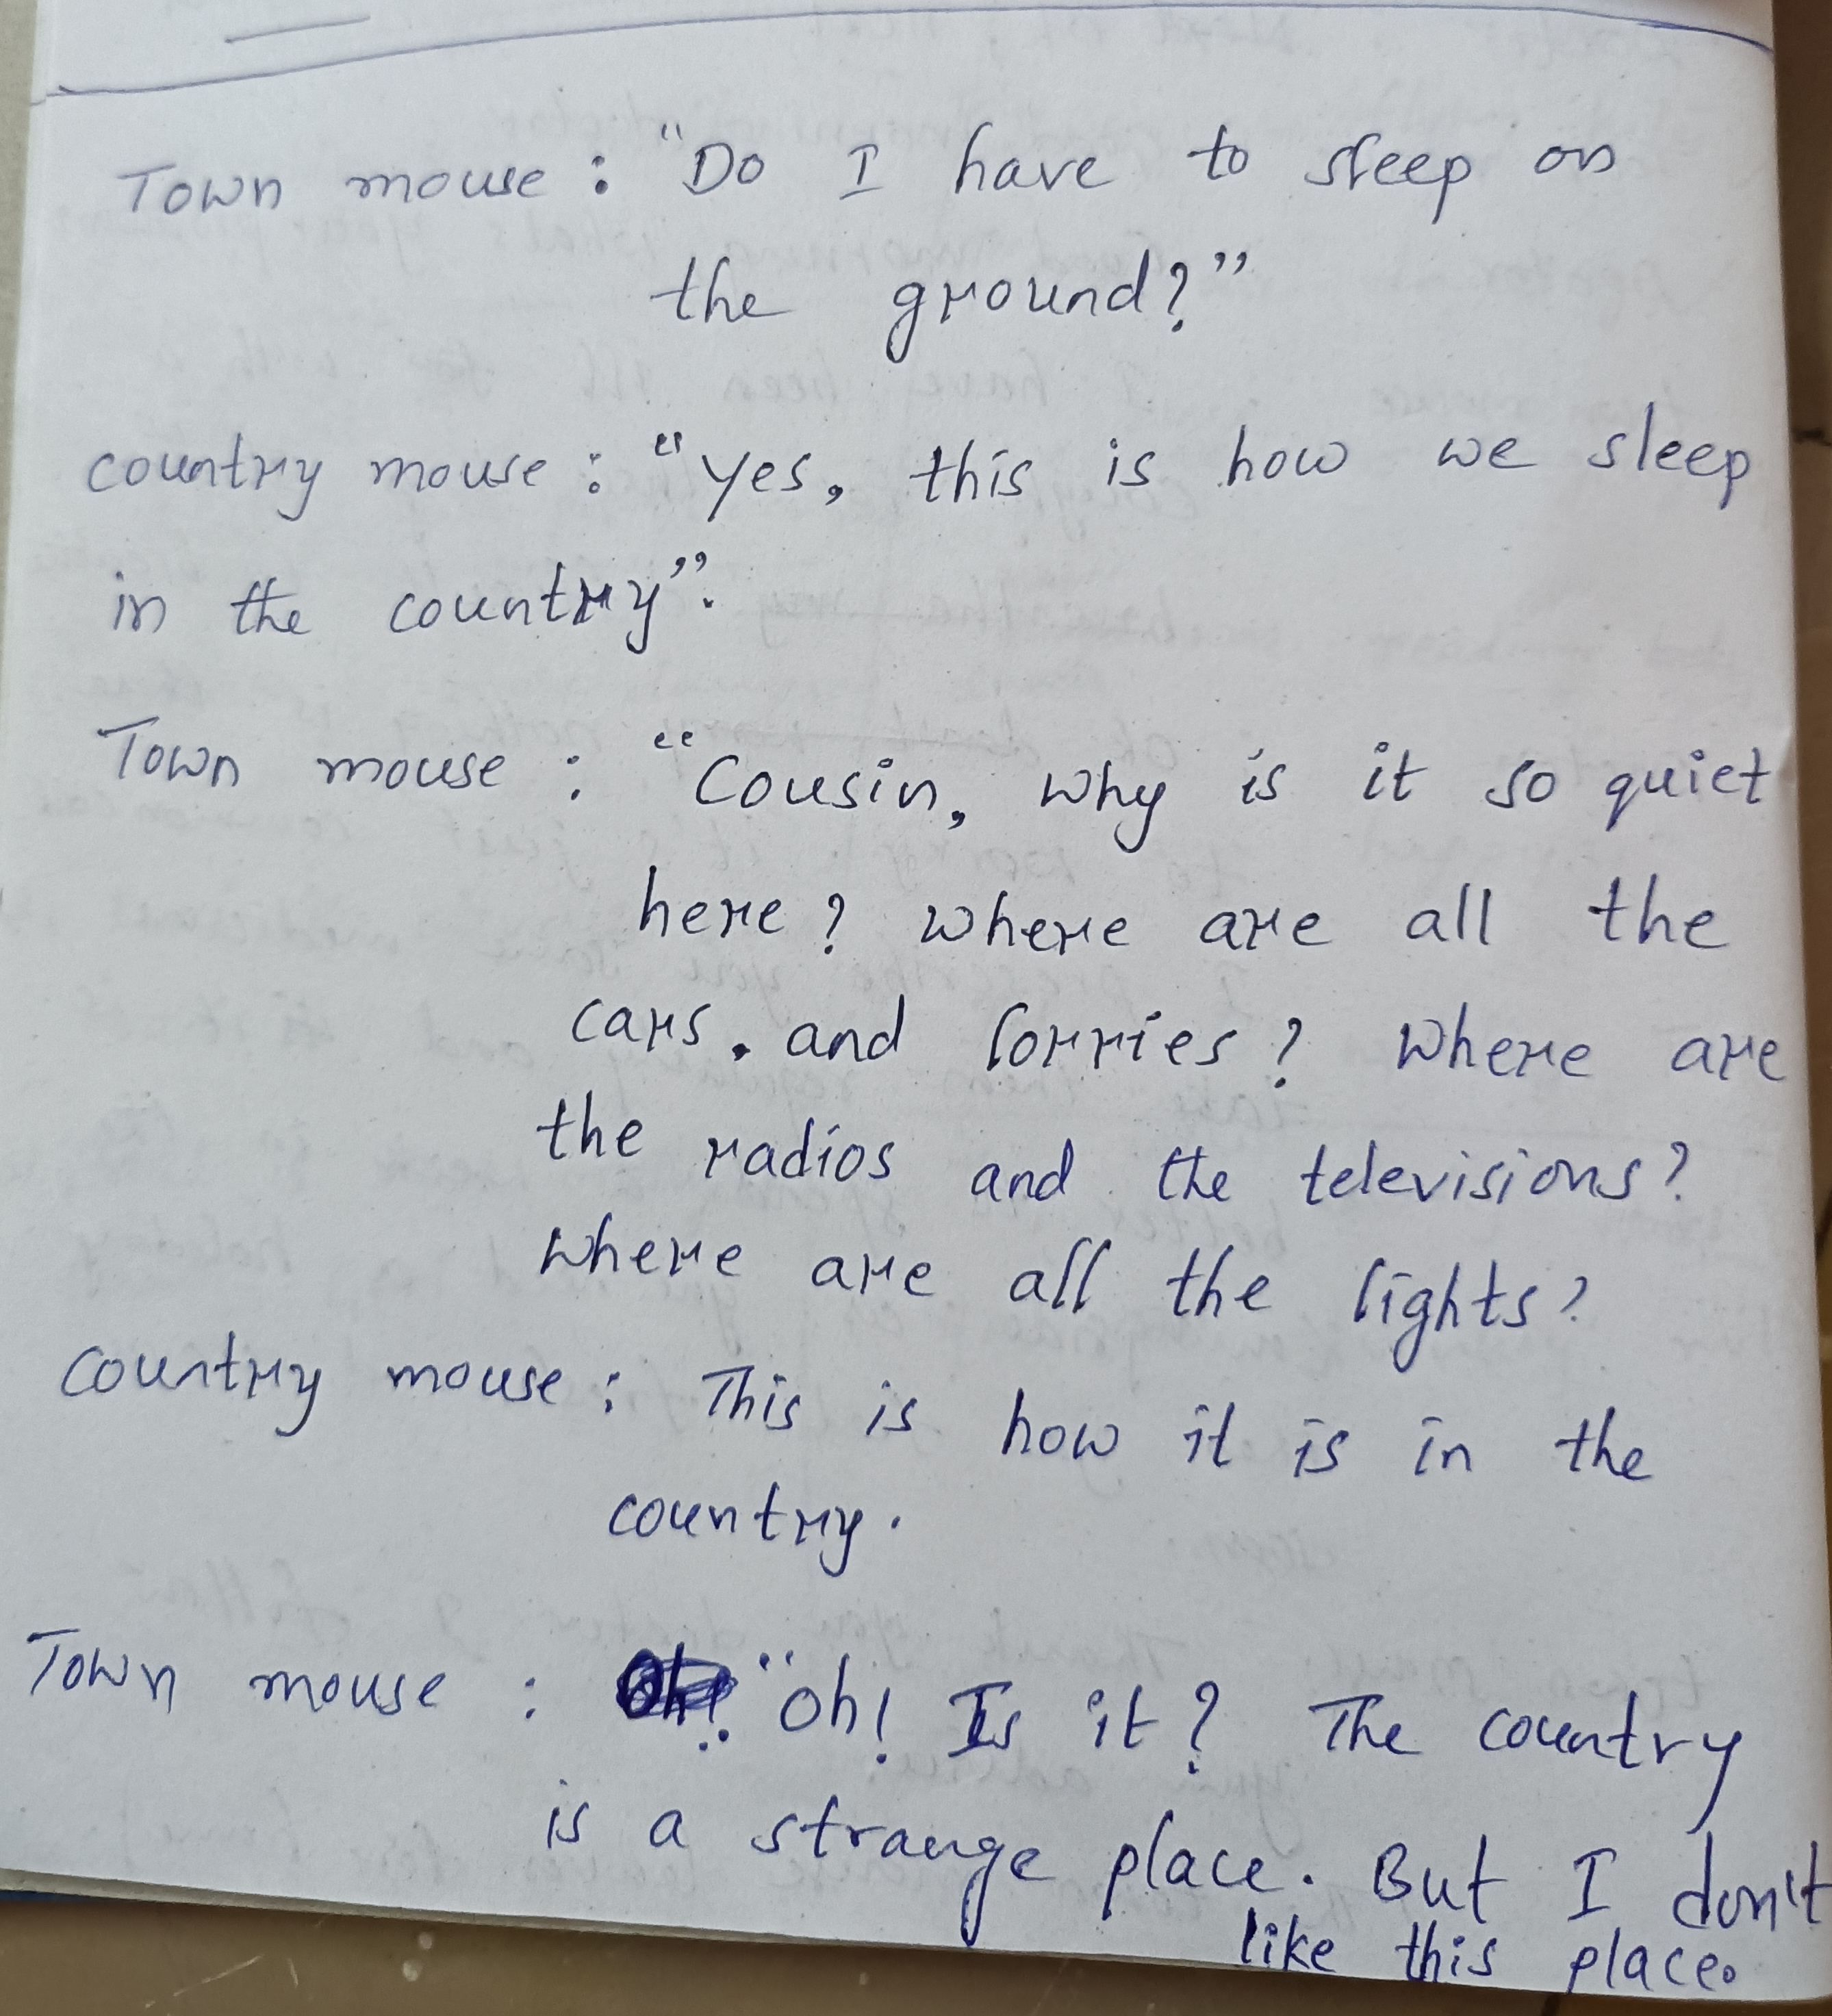 Town mouse : "Do I have to sleep on
the ground?"
country mouse : "yes, this is how we sleep
in the country".
Town mouse : "Cousin, why is it so quiet
here? where are all the
cars. and lorries? where are
the radios and the televisions?
where are all the lights?
country mouse : This is how it is in the
country.
Town mouse : Oh! "oh! Is it? The country
is a strange place. But I don't
like this place.